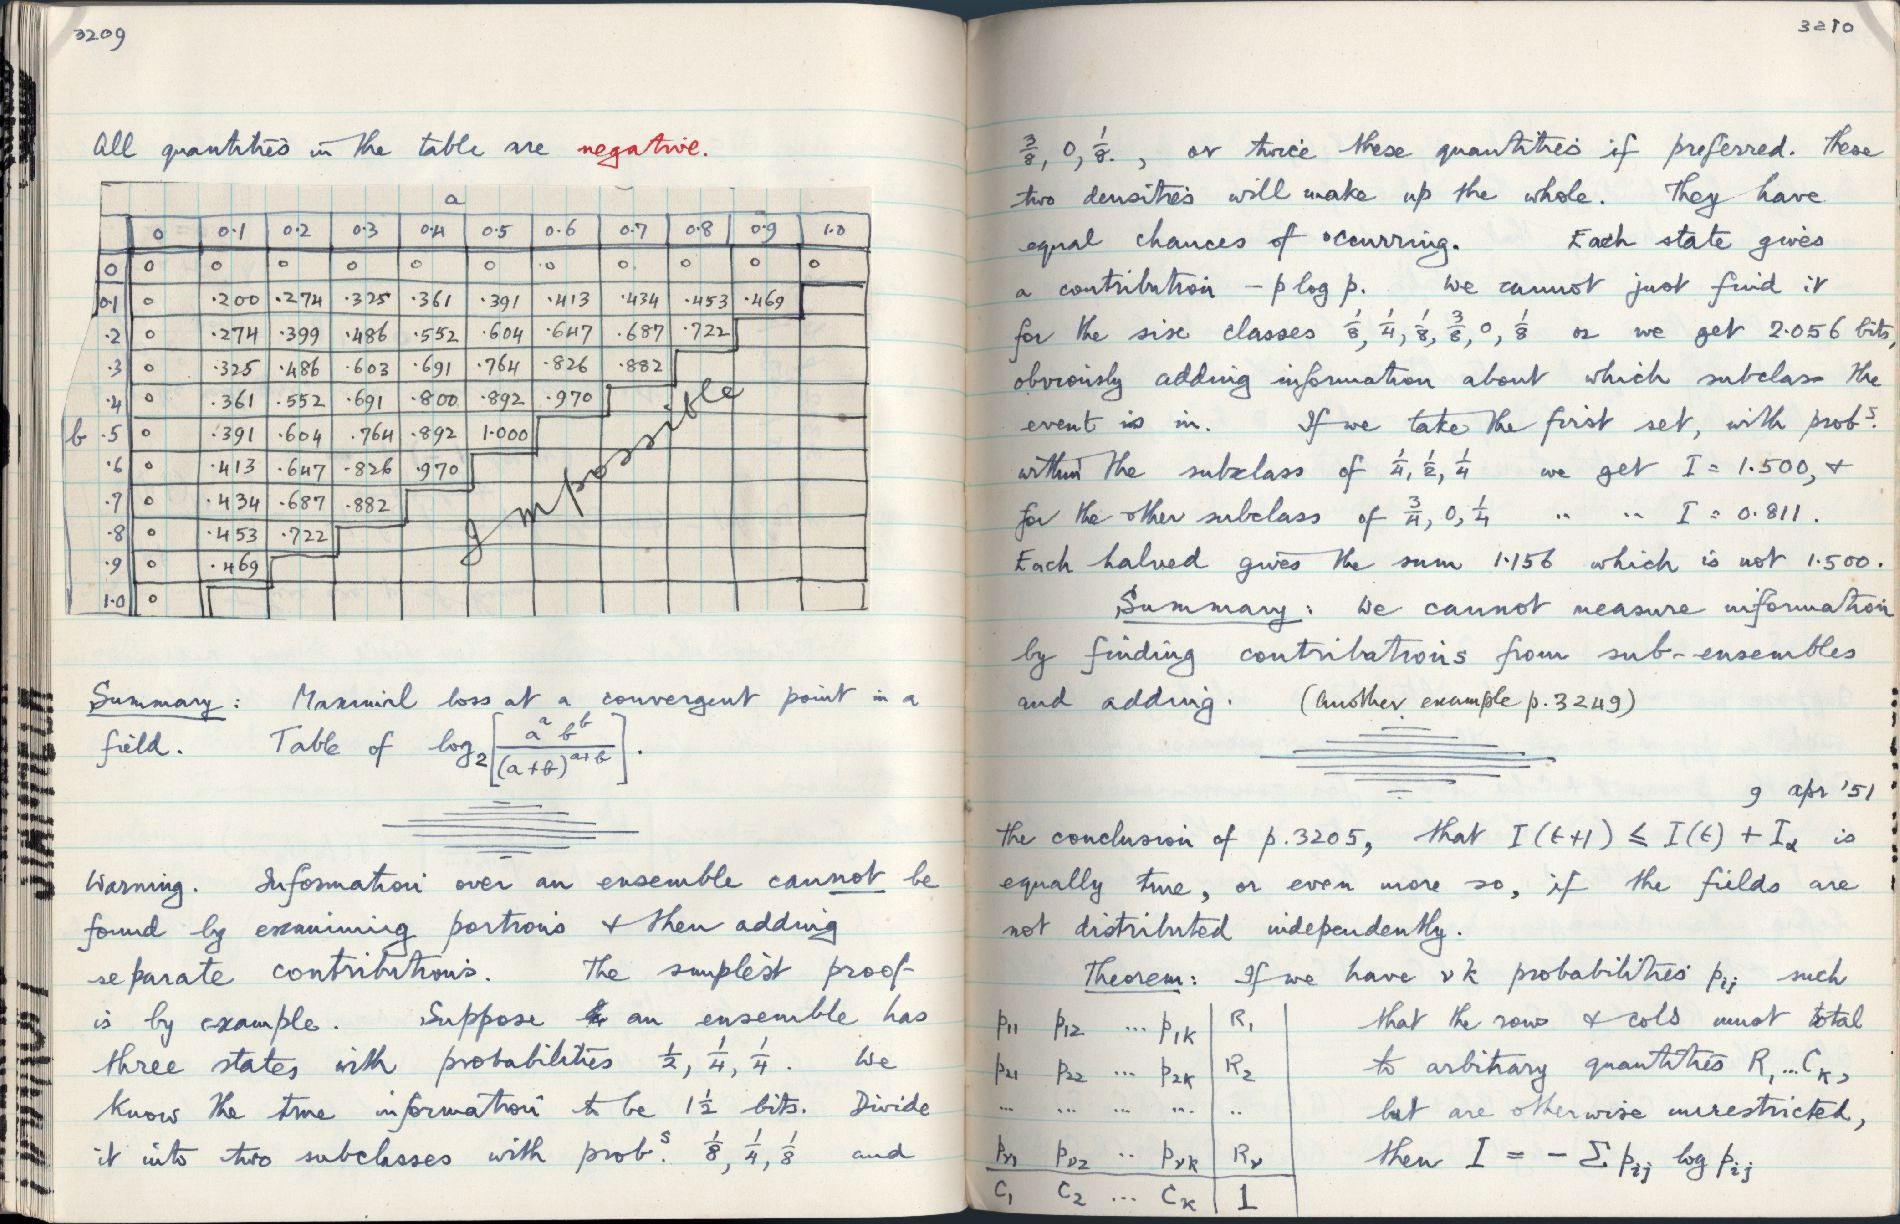 3209
All quantities in the table are negative.
a
0 0.1 0.2 0.3 0.4 0.5 0.6 0.7 0.8 0.9 1.0
0 0 0 0 0 0 0 0 0 0 0 0
0.1 0 .200 .274 .325 .361 .391 .413 .434 .453 .469
.2 0 .274 .399 .486 .552 .604 .647 .687 .722
.3 0 .325 .486 .603 .691 .764 .826 .882
.4 0 .361 .552 .691 .800 .892 .970
b .5 0 .391 .604 .764 .892 1.000
.6 0 .413 .647 .826 .970
.7 0 .434 .687 .882
.8 0 .453 .722
.9 0 .469
1.0 0
Impossible
Summary: Maximal loss at a convergent point in a
field. Table of log₂[aᵃ bᵇ / (a+b)ᵃ⁺ᵇ].
Warning. Information over an ensemble cannot be
found by examining portions & then adding
separate contributions. The simplest proof
is by example. Suppose an ensemble has
three states with probabilities ½, ¼, ¼. We
know the true information to be 1½ bits. Divide
it into two subclasses with prob.s ⅛, ¼, ⅛ and
3210
⅜, 0, ⅛., or twice these quantities if preferred. These
two densities will make up the whole. They have
equal chances of occurring. Each state gives
a contribution – p log p. We cannot just find it
for the six classes ⅛, ¼, ⅛, ⅜, 0, ⅛ or we get 2.056 bits,
obviously adding information about which subclass the
event is in. If we take the first set, with prob.s
within the subclass of ¼, ½, ¼ we get I = 1.500, &
for the other subclass of ¾, 0, ¼ " " I = 0.811.
Each halved gives the sum 1.156 which is not 1.500.
Summary: We cannot measure information
by finding contributions from sub-ensembles
and adding. (Another example p.3249)
9 Apr '51
The conclusion of p.3205, that I(t+1) ≤ I(t) + Iα is
equally true, or even more so, if the fields are
not distributed independently.
Theorem: If we have νk probabilities pᵢⱼ such
p₁₁ p₁₂ ... p₁ₖ R₁ that the rows & cols must total
p₂₁ p₂₂ ... p₂ₖ R₂ to arbitrary quantities R₁...Cₖ,
... ... ... ... .. but are otherwise unrestricted,
pν₁ pν₂ .. pνₖ Rν then I = – Σ pᵢⱼ log pᵢⱼ
C₁ C₂ ... Cₖ 1